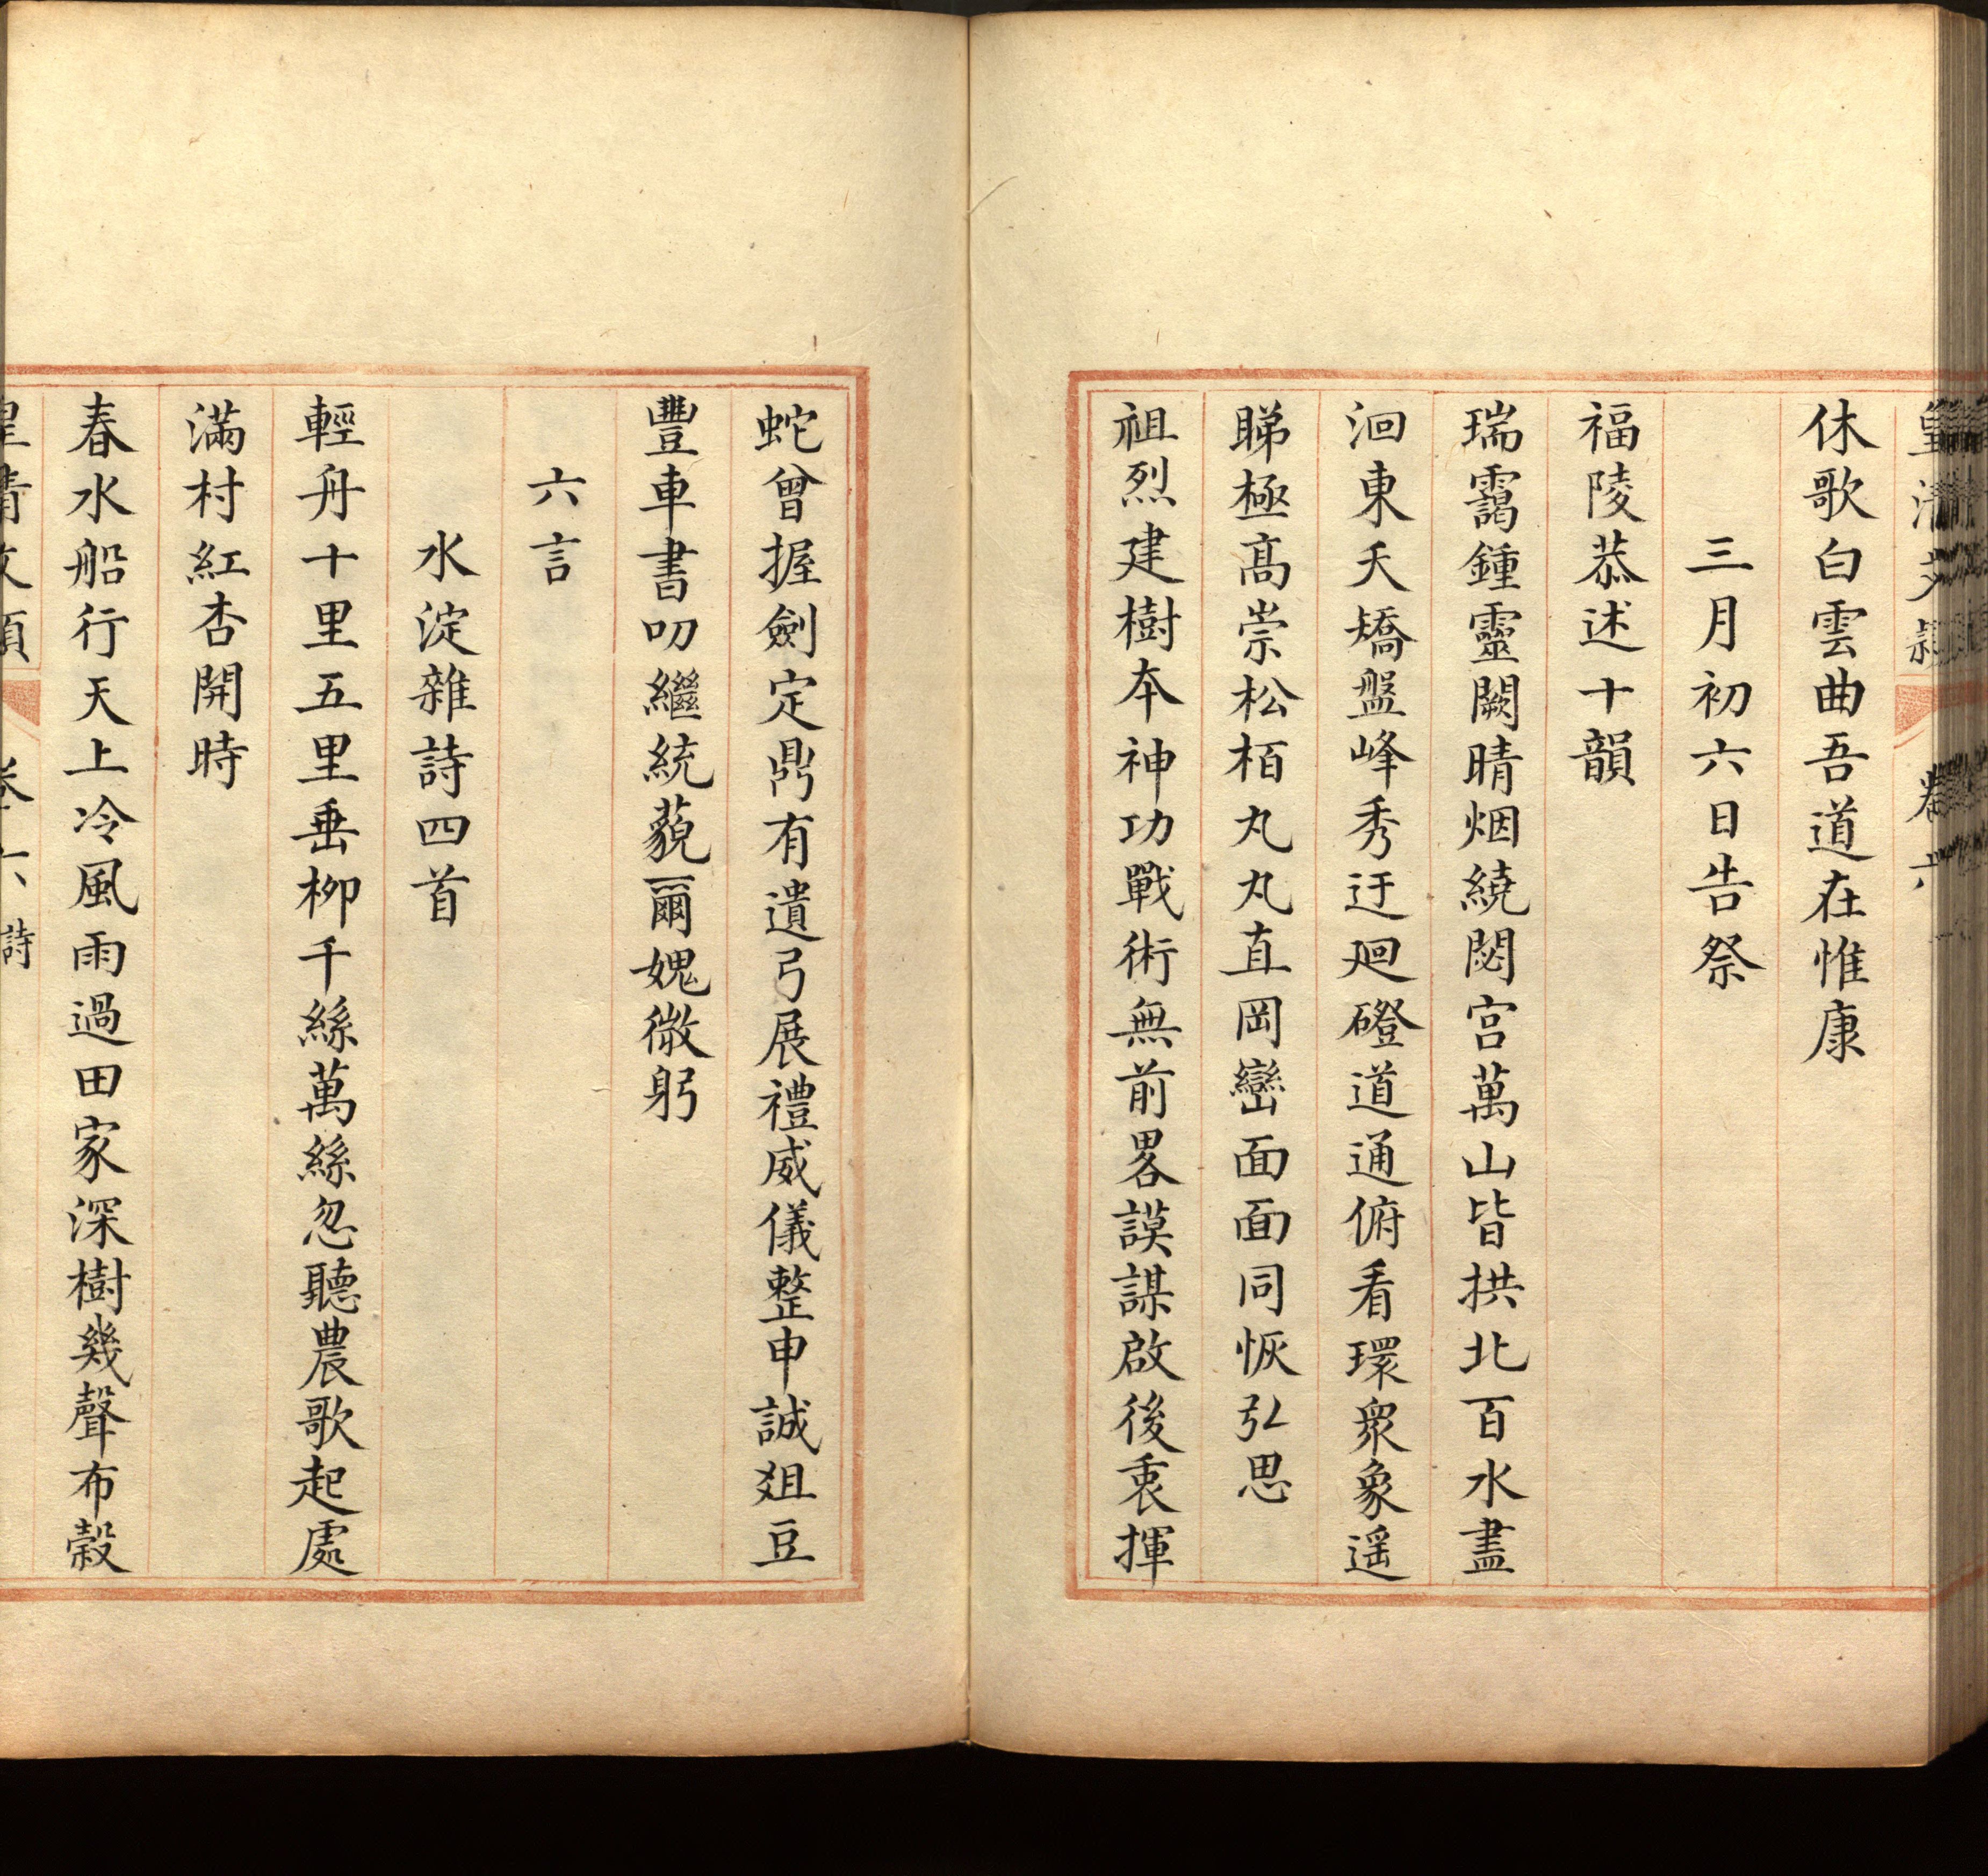 皇清文穎 卷六
休歌白雲曲吾道在惟康
三月初六日告祭
福陵恭述十韻
瑞靄鍾靈闕晴烟繞閟宫萬山皆拱北百水盡
洄東夭矯盤峰秀迂廻磴道通俯看環衆象遥
睇極髙崇松栢丸丸直岡巒面面同恢弘思
祖烈建樹本神功戰術無前畧謨謀啟後衷揮
蛇曾握劍定鼎有遺弓展禮威儀整申誠俎豆
豐車書叨繼統藐爾媿微躬
六言
水淀雜詩四首
輕舟十里五里垂栁千絲萬絲忽聽農歌起處
滿村紅杏開時
春水船行天上冷風雨過田家深樹幾聲布穀
皇清文穎 卷六 詩